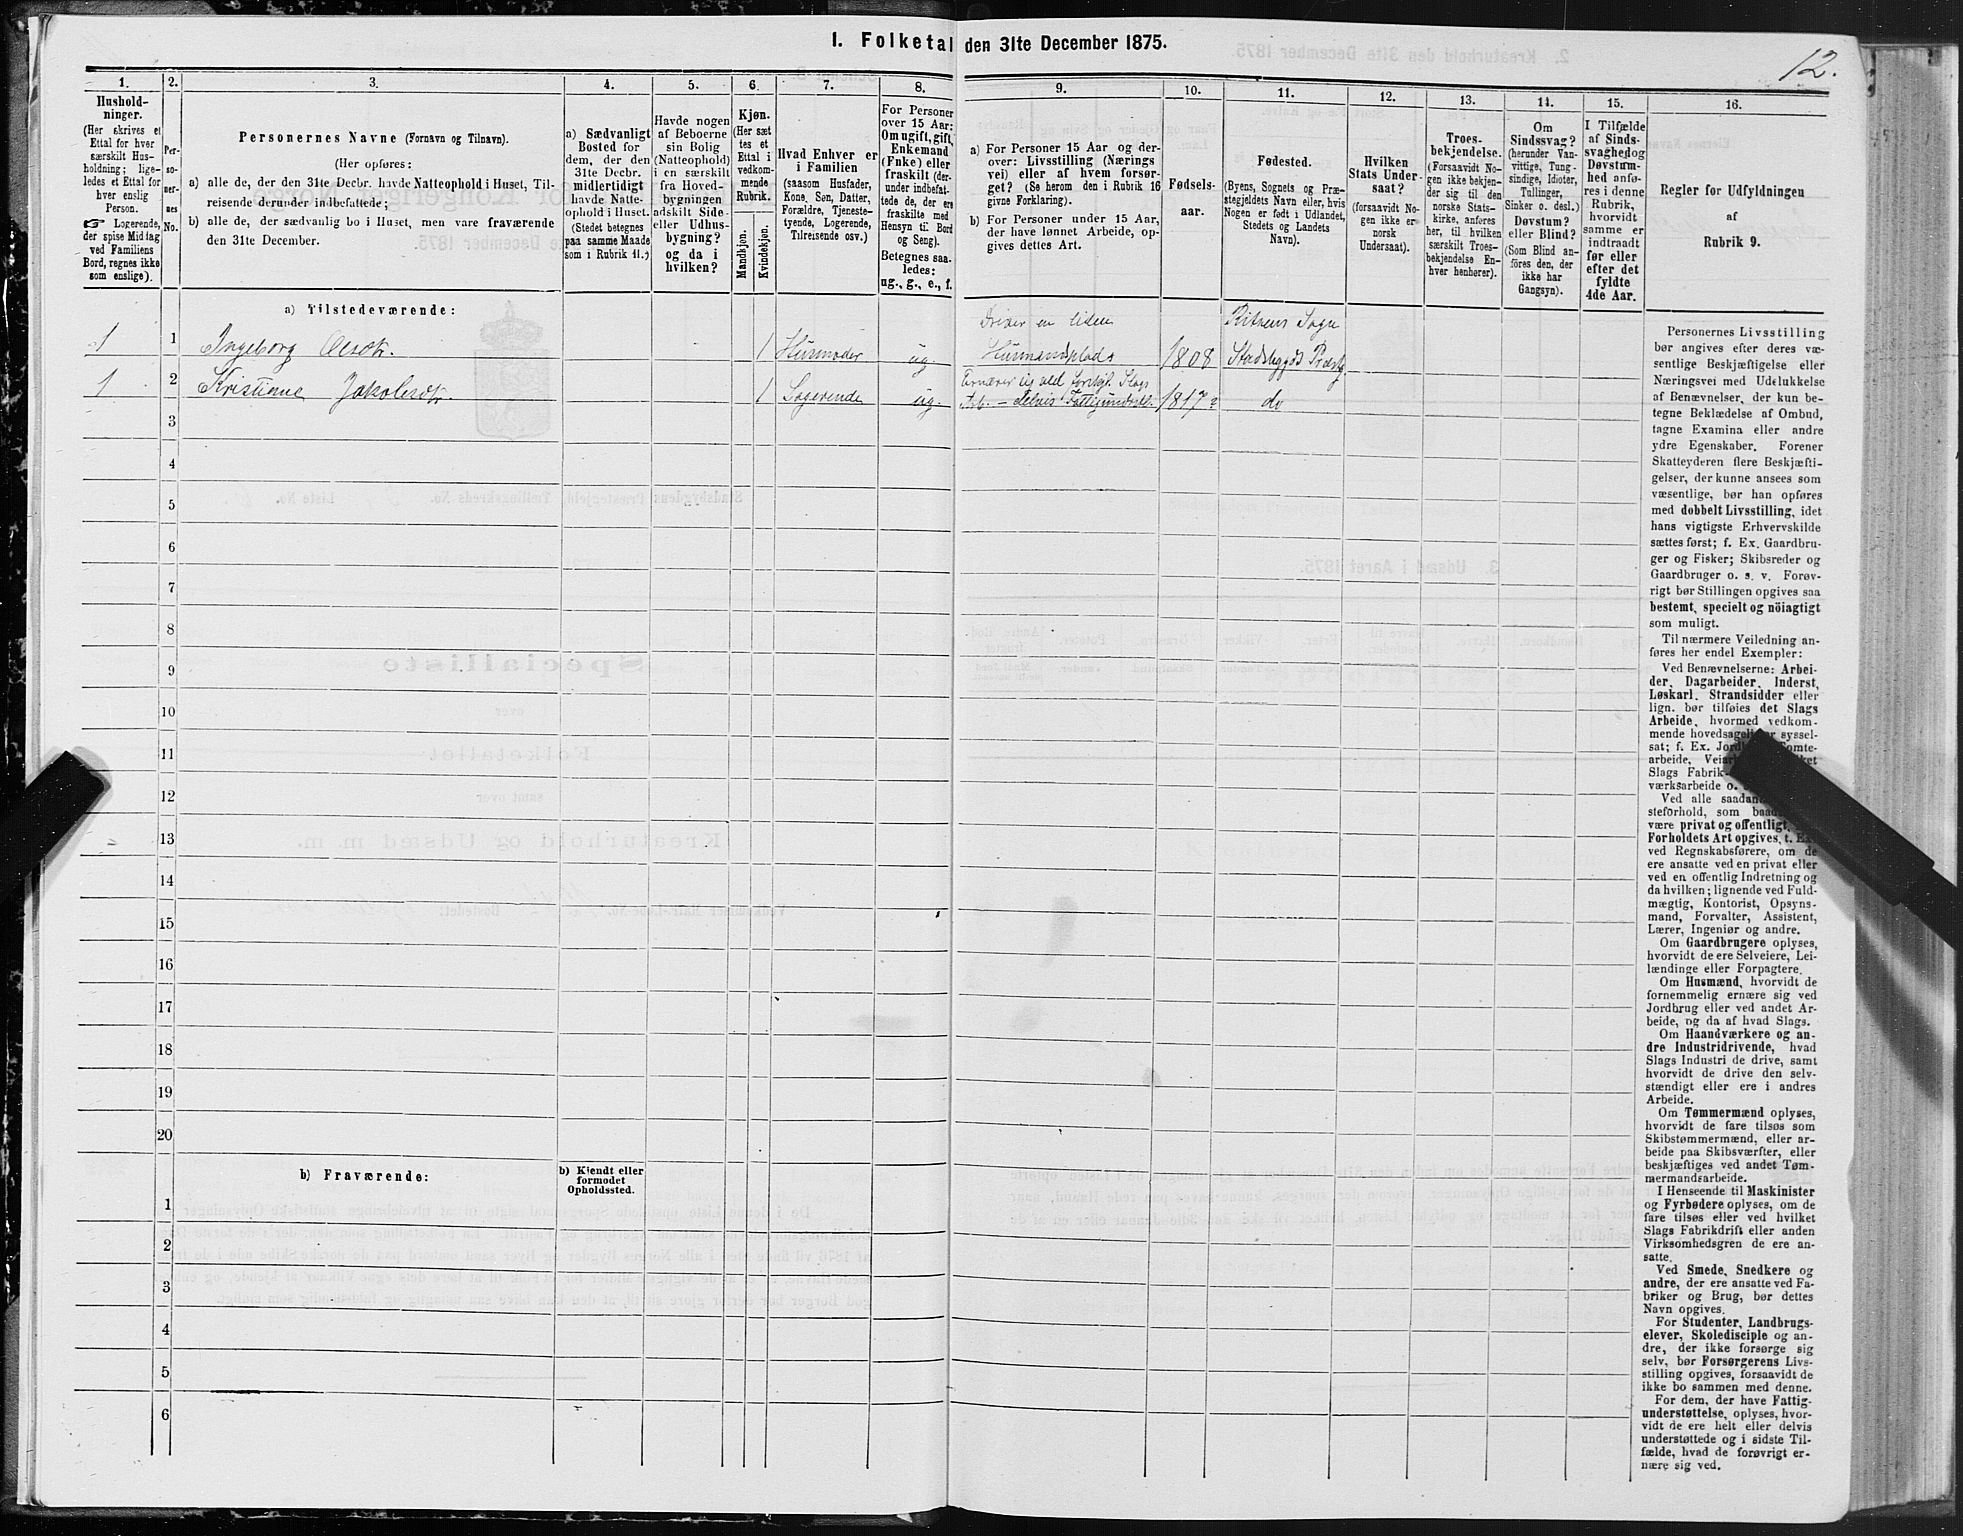 1. Folketal den 31te December 1875.
12.
1.
Hushold-
ninger.
(Her skrives et
Ettal for hver
særskilt Hus-
holdning; lige-
ledes et Ettal for
hver enslig
Person.
☞ Logerende,
der spise Middag
ved Familiens
Bord, regnes ikke
som enslige).
2.
Per-
so-
ner-
nes
No.
3.
Personernes Navne (Fornavn og Tilnavn).
(Her opføres:
a) alle de, der den 31te Decbr. havde Natteophold i Huset, Til-
reisende derunder indbefattede;
b) alle de, der sædvanlig bo i Huset, men vare fraværende
den 31te December.
4.
a) Sædvanligt
Bosted for
dem, der den
31te Decbr.
midlertidigt
havde Natte-
ophold i Huset.
(Stedet betegnes
paa samme Maade
som i Rubrik 11.)
5.
Havde nogen
af Beboerne
sin Bolig
(Natteophold)
i en særskilt
fra Hoved-
bygningen
adskilt Side-
eller Udhus-
bygning?
og da i
hvilken?
6.
Kjøn.
(Her sæt-
tes et
Ettal i
vedkom-
mende
Rubrik.
Mandkjøn.
Kvindekjøn.
7.
Hvad Enhver er
i Familien
(saasom Husfader,
Kone, Søn, Datter,
Forældre, Tjeneste-
tyende, Logerende,
Tilreisende osv.)
8.
For Personer
over 15 Aar:
Om ugift, gift,
Enkemand
(Enke) eller
fraskilt (der-
under indbefat-
tede de, der ere
fraskilte med
Hensyn til Bord
og Seng).
Betegnes saa-
ledes:
ug., g., e., f.
9.
a) For Personer 15 Aar og der-
over: Livsstilling (Nærings
vei) eller af hvem forsør-
get? (Se herom den i Rubrik 16
givne Forklaring).
b) For Personer under 15 Aar,
der have lønnet Arbeide, op-
gives dettes Art.
10.
Fødsels-
aar.
11.
Fødested.
(Byens, Sognets og Præ-
stegjeldets Navn eller, hvis
Nogen er født i Udlandet,
Stedets og Landets
Navn).
12.
Hvilken
Stats Under-
saat?
(forsaavidt No-
gen ikke er-
norsk
Undersaat).
13.
Troes-
bekjendelse.
(Forsaavidt No-
gen ikke bekjen-
der sig til den
norske Stats-
kirke, anføres
her, til hvilken
særskilt Troes-
bekjendelse En-
hver henhører).
14.
Om
Sindssvag?
(herunder Van-
vittige, Tung-
sindige, Idioter,
Tullinger,
Sinker o. desl.)
Døvstum?
eller Blind?
(Som Blind an-
föres den, der
ikke har
Gangsyn).
15.
I Tilfælde
af Sinds-
svaghed og
Døvstum-
hed anfø-
res i denne
Rubrik,
hvorvidt
samme er
indtraadt
før eller
efter det
fyldte
4de Aar.
16.
Regler for Udfyldningen
af
Rubrik 9.
a) Tilstedeværende:
Driver en liden Ritsens Sogn
1 1 Ingeborg Olesdtr. 1 Husmoder ug. Husmandsplads 1808 Stadsbygds Præstg.
Ernærer sig ved forskjl. Slags
1 2 Kristianne Jakobsdtr. 1 Logerende ug. Arb. – delvis Fattigunderst. 1817? do
3
4
5
6
7
8
9
10
11
12
13
14
15
16
17
18
19
20
b) Fraværende:
b) Kjendt eller
formodet
Opholdssted.
1
2
3
4
5
6
Personernes Livsstilling
bør angives efter deres væ-
sentlige Beskjæftigelse eller
Næringsvei med Udelukkelse
af Benævnelser, der kun be-
tegne Bekladelse af Ombud,
tagne Examina eller andre
ydre Egenskaber. Forener
Skatteyderen flere Beskjæfti-
gelser, der kunne ansees som
væsentlige, bør han opføres
med dobbelt Livsstilling, idet
hans vigtigste Erhvervskilde
sættes først; f. Ex. Gaardbru-
ger og Fisker; Skibsreder og
Gaardbruger o. s. v. Forøv-
rigt bør Stillingen opgives saa
bestemt, specielt og nöiagtigt
som muligt.
Til nærmere Veiledning an-
føres her endel Exempler:
Ved Benævnelserne: Arbei-
der, Dagarbeider, Inderst,
Løskarl, Strandsidder eller
lign. bør tilføies det Slags
Arbeide, hvormed vedkom-
mende hovedsageli syssel-
sat; f. Ex. Jor Tomte-
arbeide, Veiar ket
Slags Fabrik-
værksarbeide o.
Ved alle saadan
steforhold, som baa
være privat og offentligt,
Forholdets Art opgives, t. Ex.
ved Regnskabsførere, om de
ere ansatte ved en privat eller
ved en offentlig Indretning og
da hvilken; lignende ved Fuld-
mægtig, Kontorist, Opsyns-
mand, Forvalter, Assistent,
Lærer, Ingeniør og andre.
Om Gaardbrugere oplyses,
hvorvidt de ere Selveiere, Lei-
lændinge eller Forpagtere.
Om Husmænd, hvorvidt de
fornemmelig ernære sig ved
Jordbrug eller ved andet Ar-
beide, og da af hvad Slags.
Om Haandværkere og an-
dre Industridrivende, hvad
Slags Industri de drive, samt
hvorvidt de drive den selv-
stændigt eller ere i andres
Arbeide.
Om Tømmermænd oplyses,
hvorvidt de fare tilsøs som
Skibstømmermænd, eller ar-
beide paa Skibsværfter, eller
beskjæftiges ved andet Tøm-
mermandsarbeide.
I Henseende til Maskinister
og Fyrbødere oplyses, om de
fare tilsøs eller ved hvilket
Slags Fabrikdrift eller anden
Virksomhedsgren de ere an-
satte.
Ved Smede, Snedkere og
andre, der ere ansatte ved Fa-
briker og Brug, bør dettes
Navn opgives.
For Studenter, Landbrugs-
elever, Skoledisciple og an-
dre, der ikke forsørge sig
selv, bør Forsørgerens Livs-
stilling opgives, forsaavidt de
ikke bo sammen med denne.
For dem, der have Fattig-
understøttelse, oplyses, hvor-
vidt de ere helt eller delvis
understøttede og i sidste Til-
fælde, hvad de forøvrigt er-
nære sig ved.